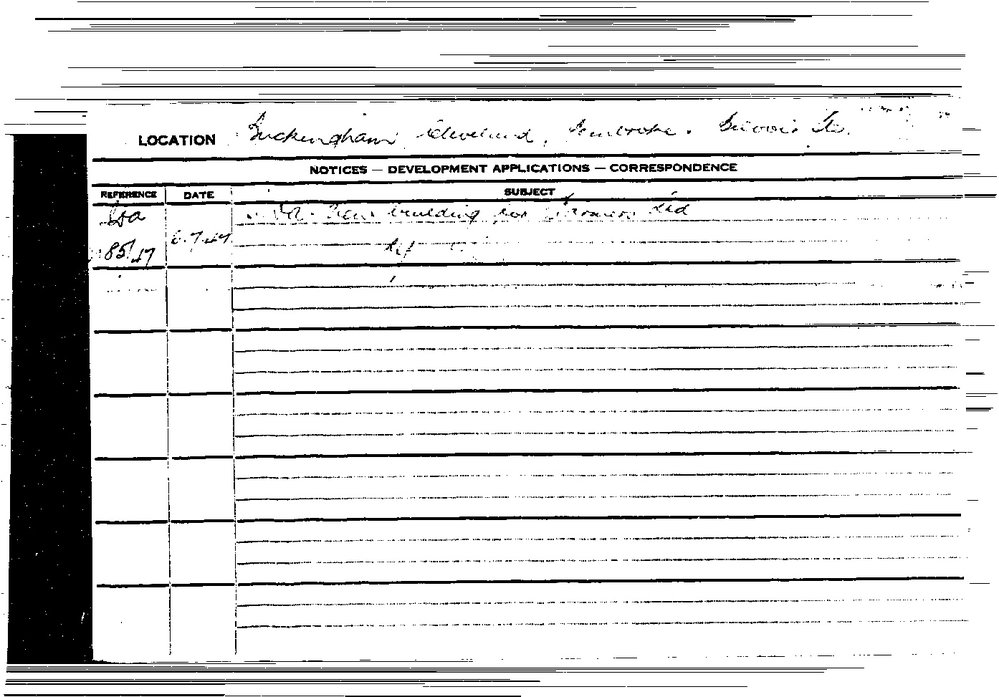 LOCATION Buckingham, Cleveland, Pembroke & Sts.
NOTICES — DEVELOPMENT APPLICATIONS — CORRESPONDENCE
REFERENCE DATE SUBJECT
New building for Ltd
85/47 6.7.47